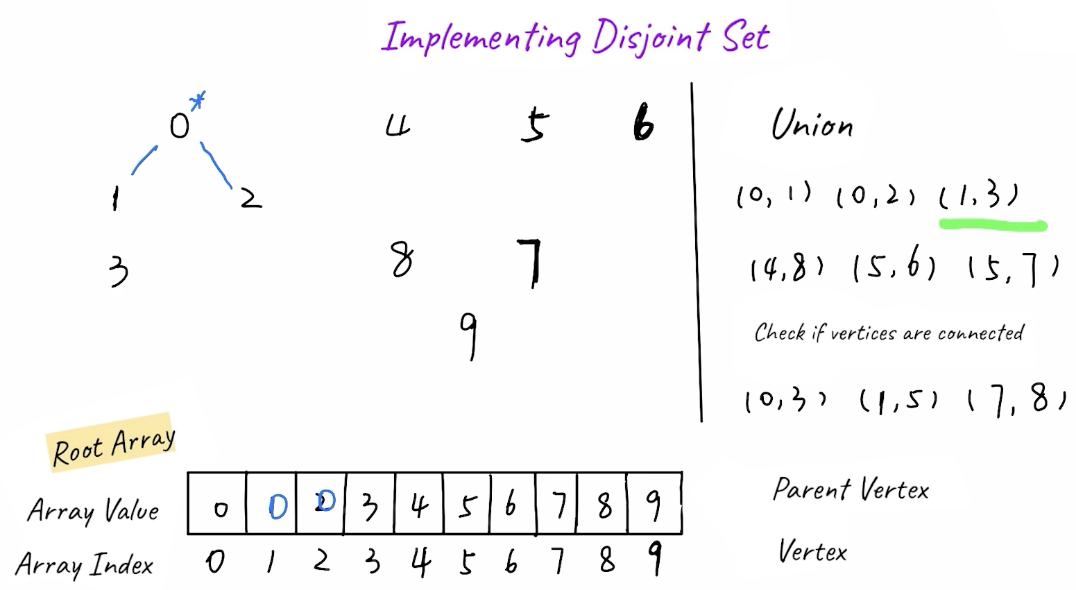 Implementing Disjoint Set
0* 4 5 6
1 2
3 8 7
9
Union
(0, 1) (0, 2) (1, 3)
(4, 8) (5, 6) (5, 7)
Check if vertices are connected
(0, 3) (1, 5) (7, 8)
Root Array
Array Value 0 0 0 3 4 5 6 7 8 9 Parent Vertex
Array Index 0 1 2 3 4 5 6 7 8 9 Vertex